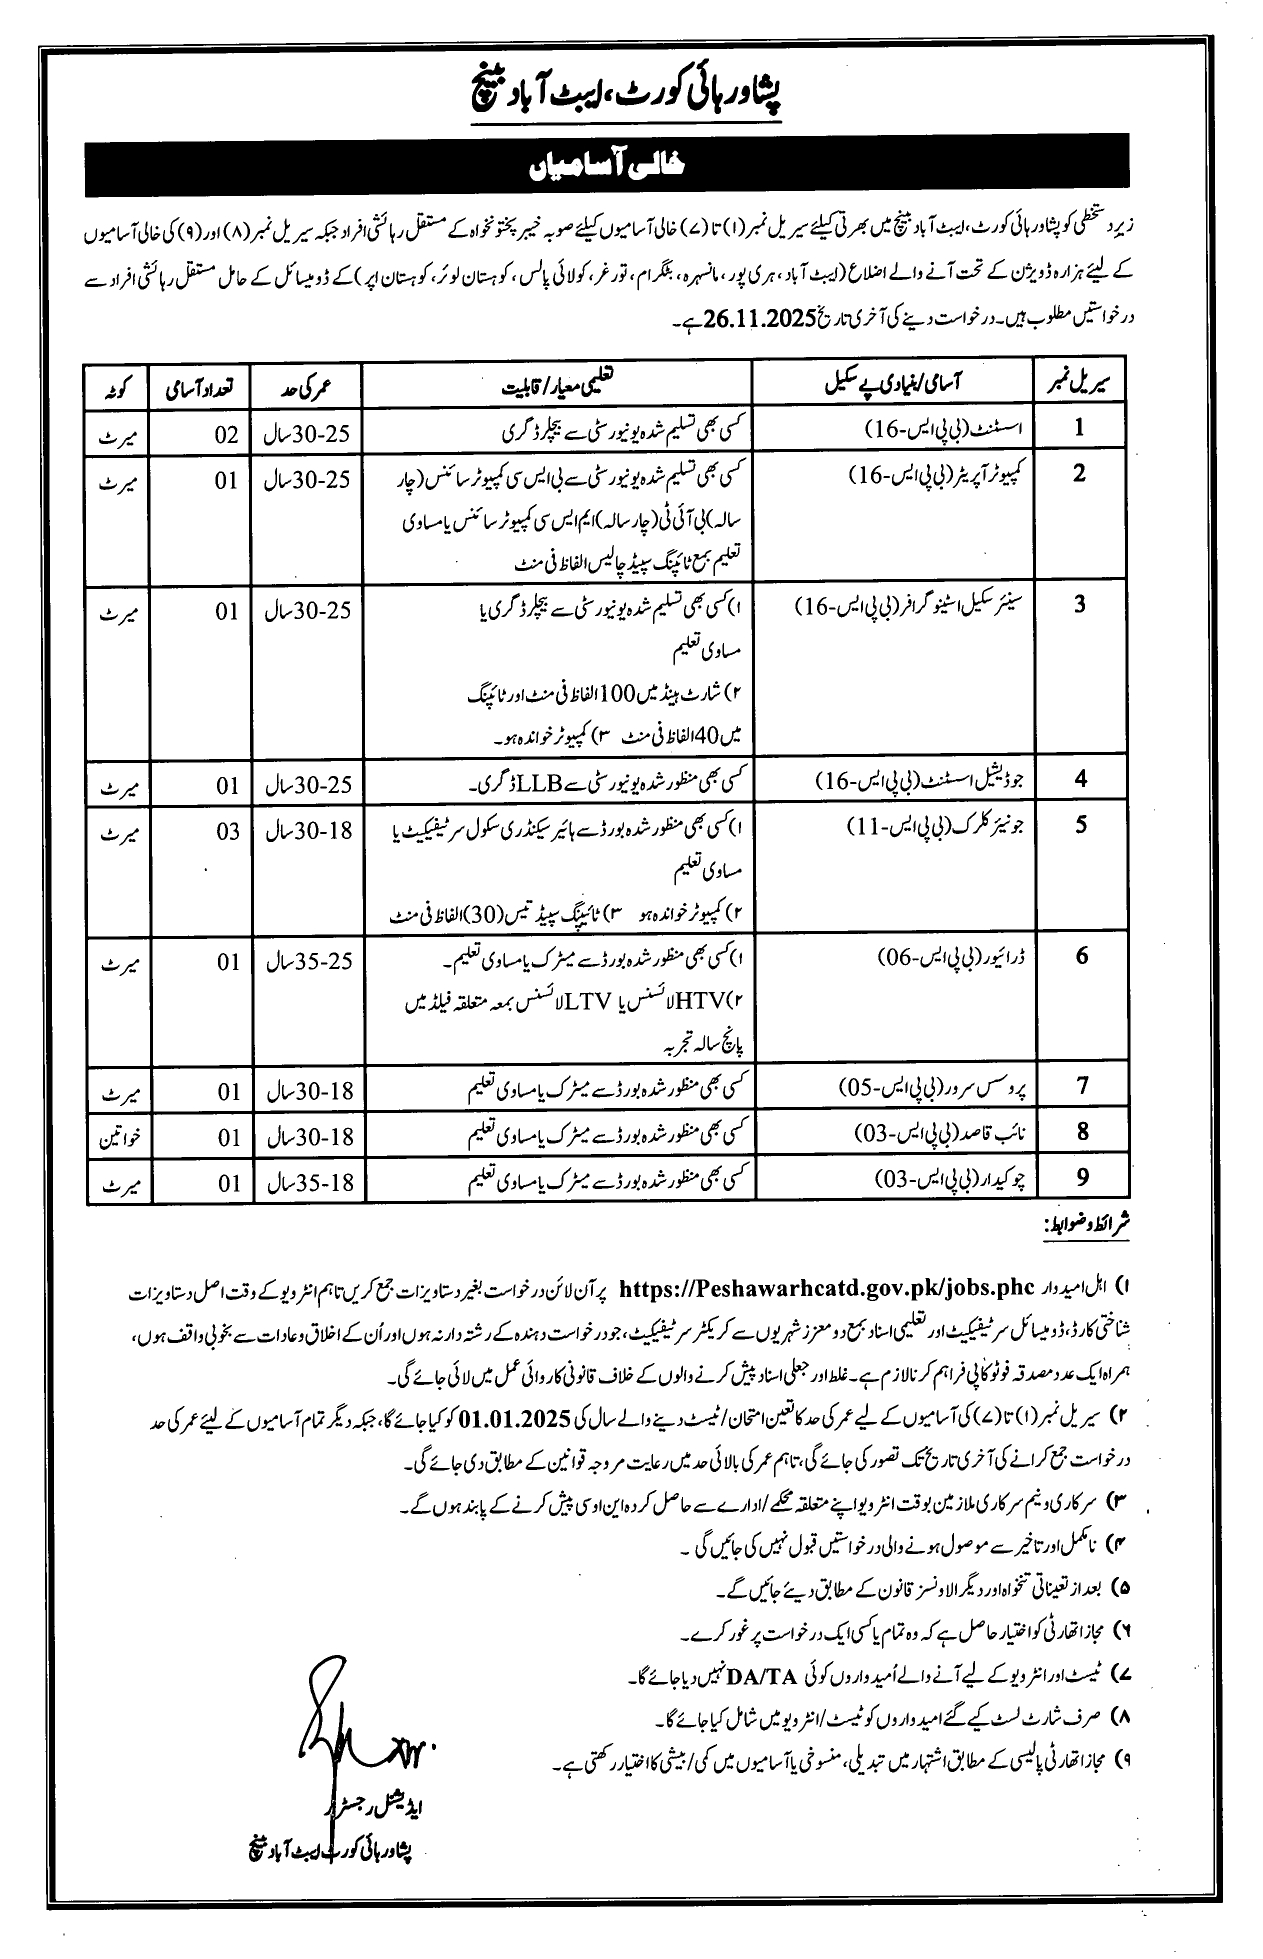 پشاور ہائی کورٹ، ایبٹ آباد بینچ
خالی آسامیاں
زیر دستخطی کو پشاور ہائی کورٹ، ایبٹ آباد بینچ میں بھرتی کیلئے سیریل نمبر (۱) تا (۷) خالی آسامیوں کیلئے صوبہ خیبر پختونخواہ کے مستقل رہائشی افراد جبکہ سیریل نمبر (۸) اور (۹) کی خالی آسامیوں
کے لیئے ہزارہ ڈویژن کے تحت آنے والے اضلاع (ایبٹ آباد، ہری پور، مانسہرہ، بٹگرام، تورغر، کولائی پالس، کوہستان لوئر، کوہستان اپر) کے ڈومیسائل کے حامل مستقل رہائشی افراد سے
درخواستیں مطلوب ہیں۔ درخواست دینے کی آخری تاریخ 26.11.2025 ہے۔
سیریل نمبر آسامی/بنیادی پے سکیل تعلیمی معیار/قابلیت عمر کی حد تعداد آسامی کوٹہ
1 اسسٹنٹ (بی پی ایس-16) کسی بھی تسلیم شدہ یونیورسٹی سے بیچلر ڈگری 25-30 سال 02 میرٹ
2 کمپیوٹر آپریٹر (بی پی ایس-16) کسی بھی تسلیم شدہ یونیورسٹی سے بی ایس سی کمپیوٹر سائنس (چار 25-30 سال 01 میرٹ
سالہ) بی آئی ٹی (چار سالہ) ایم ایس سی کمپیوٹر سائنس یا مساوی
تعلیم بمع ٹائپنگ سپیڈ چالیس الفاظ فی منٹ
3 سینئر سکیل اسٹینوگرافر (بی پی ایس-16) ۱) کسی بھی تسلیم شدہ یونیورسٹی سے بیچلر ڈگری یا 25-30 سال 01 میرٹ
مساوی تعلیم
۲) شارٹ ہینڈ میں 100 الفاظ فی منٹ اور ٹائپنگ
میں 40 الفاظ فی منٹ ۳) کمپیوٹر خواندہ ہو۔
4 جوڈیشل اسسٹنٹ (بی پی ایس-16) کسی بھی منظور شدہ یونیورسٹی سے LLB ڈگری۔ 25-30 سال 01 میرٹ
5 جونیئر کلرک (بی پی ایس-11) ۱) کسی بھی منظور شدہ بورڈ سے ہائیر سیکنڈری سکول سرٹیفکیٹ یا 18-30 سال 03 میرٹ
مساوی تعلیم
۲) کمپیوٹر خواندہ ہو ۳) ٹائپنگ سپیڈ تیس (30) الفاظ فی منٹ
6 ڈرائیور (بی پی ایس-06) ۱) کسی بھی منظور شدہ بورڈ سے میٹرک یا مساوی تعلیم۔ 25-35 سال 01 میرٹ
۲) HTV لائسنس یا LTV لائسنس بمعہ متعلقہ فیلڈ میں
پانچ سالہ تجربہ
7 پروسس سرور (بی پی ایس-05) کسی بھی منظور شدہ بورڈ سے میٹرک یا مساوی تعلیم 18-30 سال 01 میرٹ
8 نائب قاصد (بی پی ایس-03) کسی بھی منظور شدہ بورڈ سے میٹرک یا مساوی تعلیم 18-30 سال 01 خواتین
9 چوکیدار (بی پی ایس-03) کسی بھی منظور شدہ بورڈ سے میٹرک یا مساوی تعلیم 18-35 سال 01 میرٹ
شرائط و ضوابط:
۱) اہل امیدوار https://Peshawarhcatd.gov.pk/jobs.phc پر آن لائن درخواست بغیر دستاویزات جمع کریں تاہم انٹرویو کے وقت اصل دستاویزات
شناختی کارڈ، ڈومیسائل سرٹیفکیٹ اور تعلیمی اسناد بمع دو معزز شہریوں سے کریکٹر سرٹیفکیٹ، جو درخواست دہندہ کے رشتہ دار نہ ہوں اور اُن کے اخلاق و عادات سے بخوبی واقف ہوں،
ہمراہ ایک عدد مصدقہ فوٹو کاپی فراہم کرنا لازم ہے۔ غلط اور جعلی اسناد پیش کرنے والوں کے خلاف قانونی کاروائی عمل میں لائی جائے گی۔
۲) سیریل نمبر (۱) تا (۷) کی آسامیوں کے لیے عمر کی حد کا تعین امتحان/ٹیسٹ دینے والے سال کی 01.01.2025 کو کیا جائے گا، جبکہ دیگر تمام آسامیوں کے لیئے عمر کی حد
درخواست جمع کرانے کی آخری تاریخ تک تصور کی جائے گی، تاہم عمر کی بالائی حد میں رعایت مروجہ قوانین کے مطابق دی جائے گی۔
۳) سرکاری و نیم سرکاری ملازمین بوقت انٹرویو اپنے متعلقہ محکمے/ادارے سے حاصل کردہ این او سی پیش کرنے کے پابند ہوں گے۔
۴) نامکمل اور تاخیر سے موصول ہونے والی درخواستیں قبول نہیں کی جائیں گی۔
۵) بعد از تعیناتی تنخواہ اور دیگر الاونسز قانون کے مطابق دیئے جائیں گے۔
۶) مجاز اتھارٹی کو اختیار حاصل ہے کہ وہ تمام یا کسی ایک درخواست پر غور کرے۔
۷) ٹیسٹ اور انٹرویو کے لیے آنے والے اُمیدواروں کوئی DA/TA نہیں دیا جائے گا۔
۸) صرف شارٹ لسٹ کیے گئے امیدواروں کو ٹیسٹ/انٹرویو میں شامل کیا جائے گا۔
۹) مجاز اتھارٹی پالیسی کے مطابق اشتہار میں تبدیلی، منسوخی یا آسامیوں میں کمی/بیشی کا اختیار رکھتی ہے۔
ایڈیشنل رجسٹرار
پشاور ہائی کورٹ ایبٹ آباد بینچ